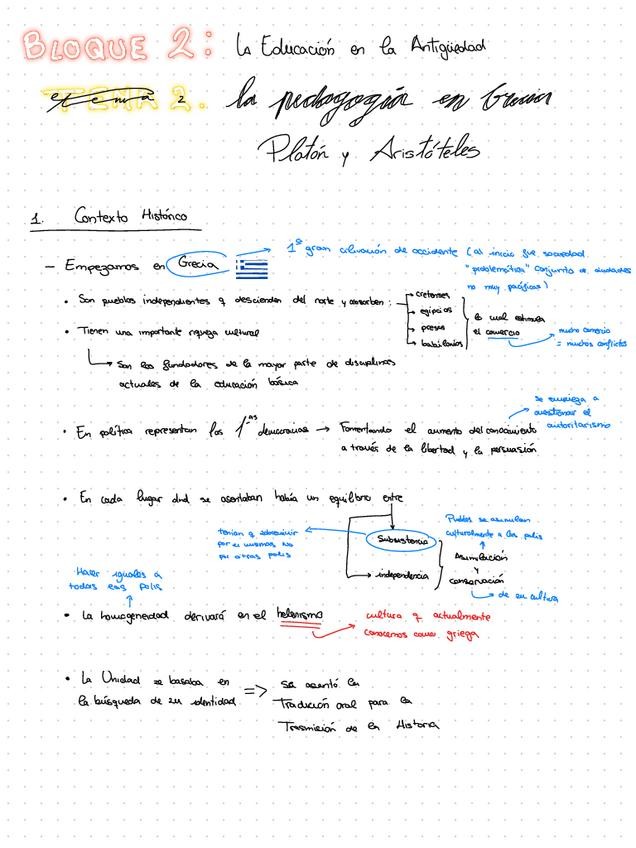 BLOQUE 2: La Educación en la Antigüedad
TEMA 2. la pedagogía en Grecia
Platón y Aristóteles
1. Contexto Histórico
– Empezamos en Grecia
1ª gran civilización de occidente (al inicio fue sociedad
"problemática" conjunto de ciudades
no muy pacíficas)
• Son pueblos independientes q descienden del norte y absorben:
cretenses
egipcios
persas
babilonios
lo cual estimula
el comercio
mucho comercio
= muchos conflictos
• Tienen una importante riqueza cultural
Son los fundadores de la mayor parte de disciplinas
actuales de la educación básica
• En política representan las 1ᵃˢ democracias → Fomentando el aumento del conocimiento
a través de la libertad y la persuasión
se empieza a
cuestionar el
autoritarismo
• En cada lugar dnd se asentaban había un equilibrio entre
Subsistencia
independencia
tenían q sobrevivir
por si mismas no
por otras polis
Pueblos se asimilan
culturalmente a las polis
Asimilación
y
conservación
de su cultura
Hacer iguales a
todas esas polis
• La homogeneidad derivará en el helenismo
cultura q actualmente
conocemos como griega
• La Unidad se basaba en
la búsqueda de su identidad
=> se asentó la
Tradición oral para la
Trasmisión de la Historia